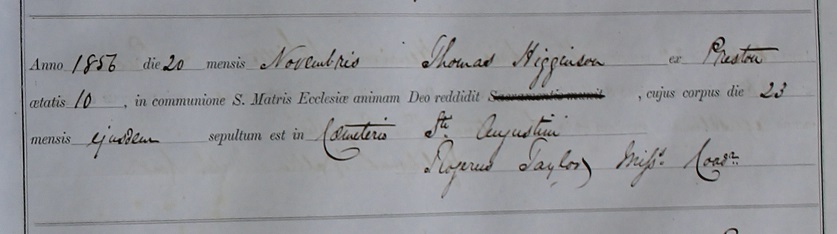 Anno 1856 die 20 mensis Novembris Thomas Higginson ex Preston
ætatis 10, in communione S. Matris Ecclesiæ animam Deo reddidit Sacramentis muniit, cujus corpus die 23
mensis ejusdem sepultum est in Cœmeterio Sti. Augustini
Rogerus Taylor Misss. Coadr.